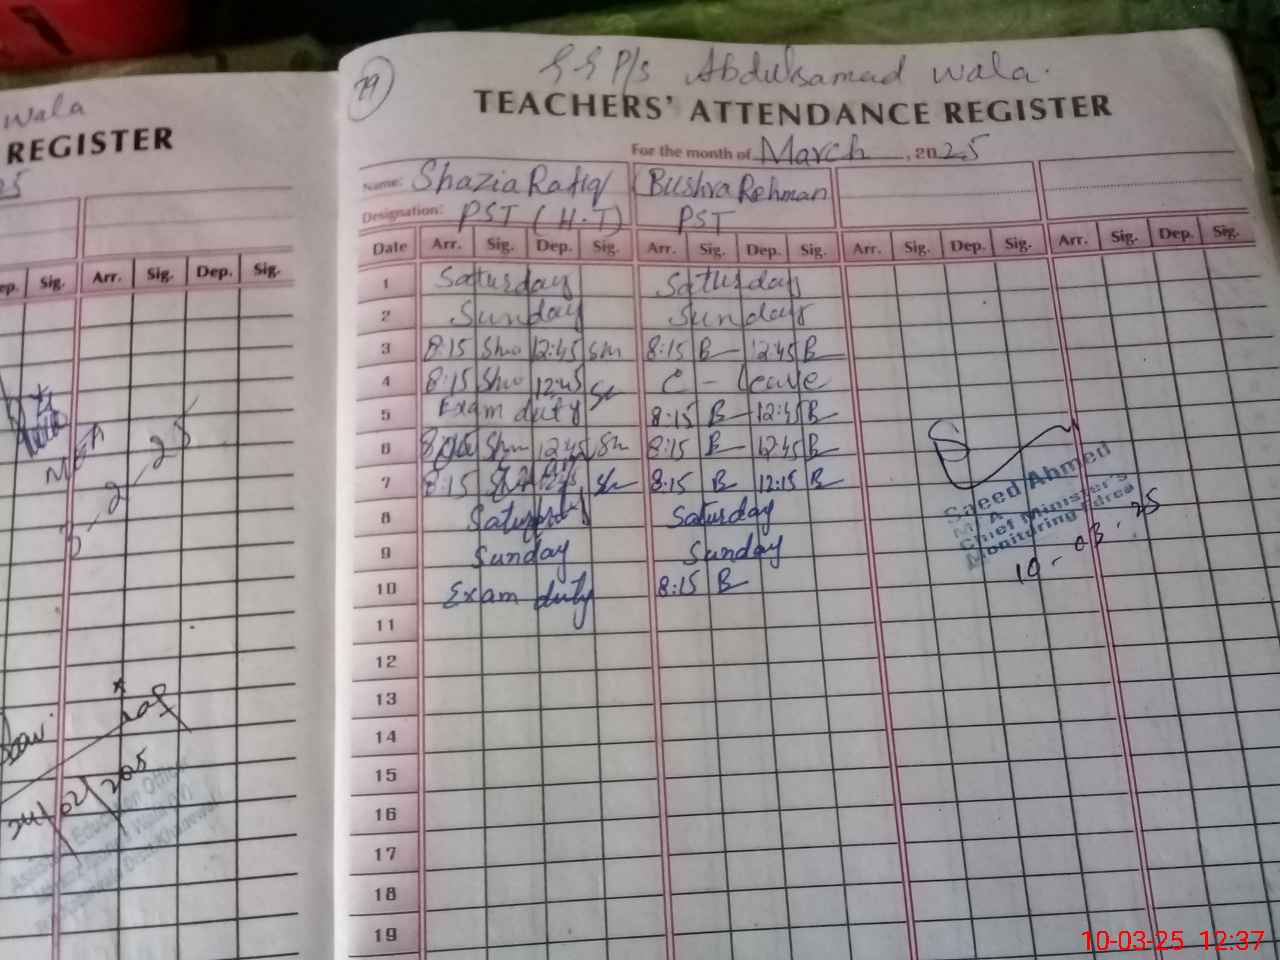 wala
REGISTER
ep. Sig. Arr. Sig. Dep. Sig.
MEA
Assistant Education Officer
79
GGP/s Abdulsamad wala.
TEACHERS' ATTENDANCE REGISTER
For the month of March, 2025
Name: Shazia Rafiq Bushra Rehman
Designation: PST (H.T) PST
Date Arr. Sig. Dep. Sig. Arr. Sig. Dep. Sig. Arr. Sig. Dep. Sig. Arr. Sig. Dep. Sig.
1 Saturday Saturday
2 Sunday Sunday
3 8:15 Sha 12:45 Sh 8:15 B 12:45 B
4 8:15 Sha 12:45 Sh C - Leave
5 Exam duty 8:15 B 12:45 B
6 Sh 12:45 Sh 8:15 B 12:45 B
7 8:15 Sh 8:15 B 12:15 B
8 Saturday Saturday
9 Sunday Sunday
10 Exam duty 8:15 B
11
12
13
14
15
16
17
18
19
Saeed Ahmed
M.E.A
Chief Minister's
Monitoring Force
10-03-25
10-03-25 12:37